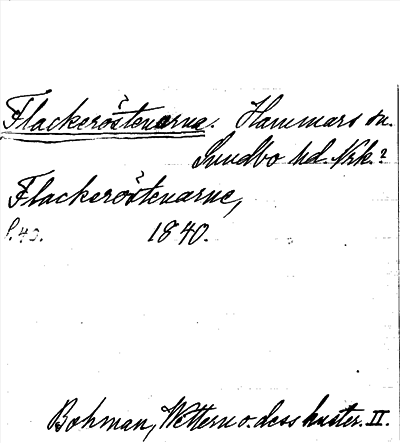 Flackeröstenarna. Hammars sn.
Sundbo hd. Nrk.?
Flackeröstenarne,
s. 43. 1840.
Bohman, Wettern o. dess kuster. II.